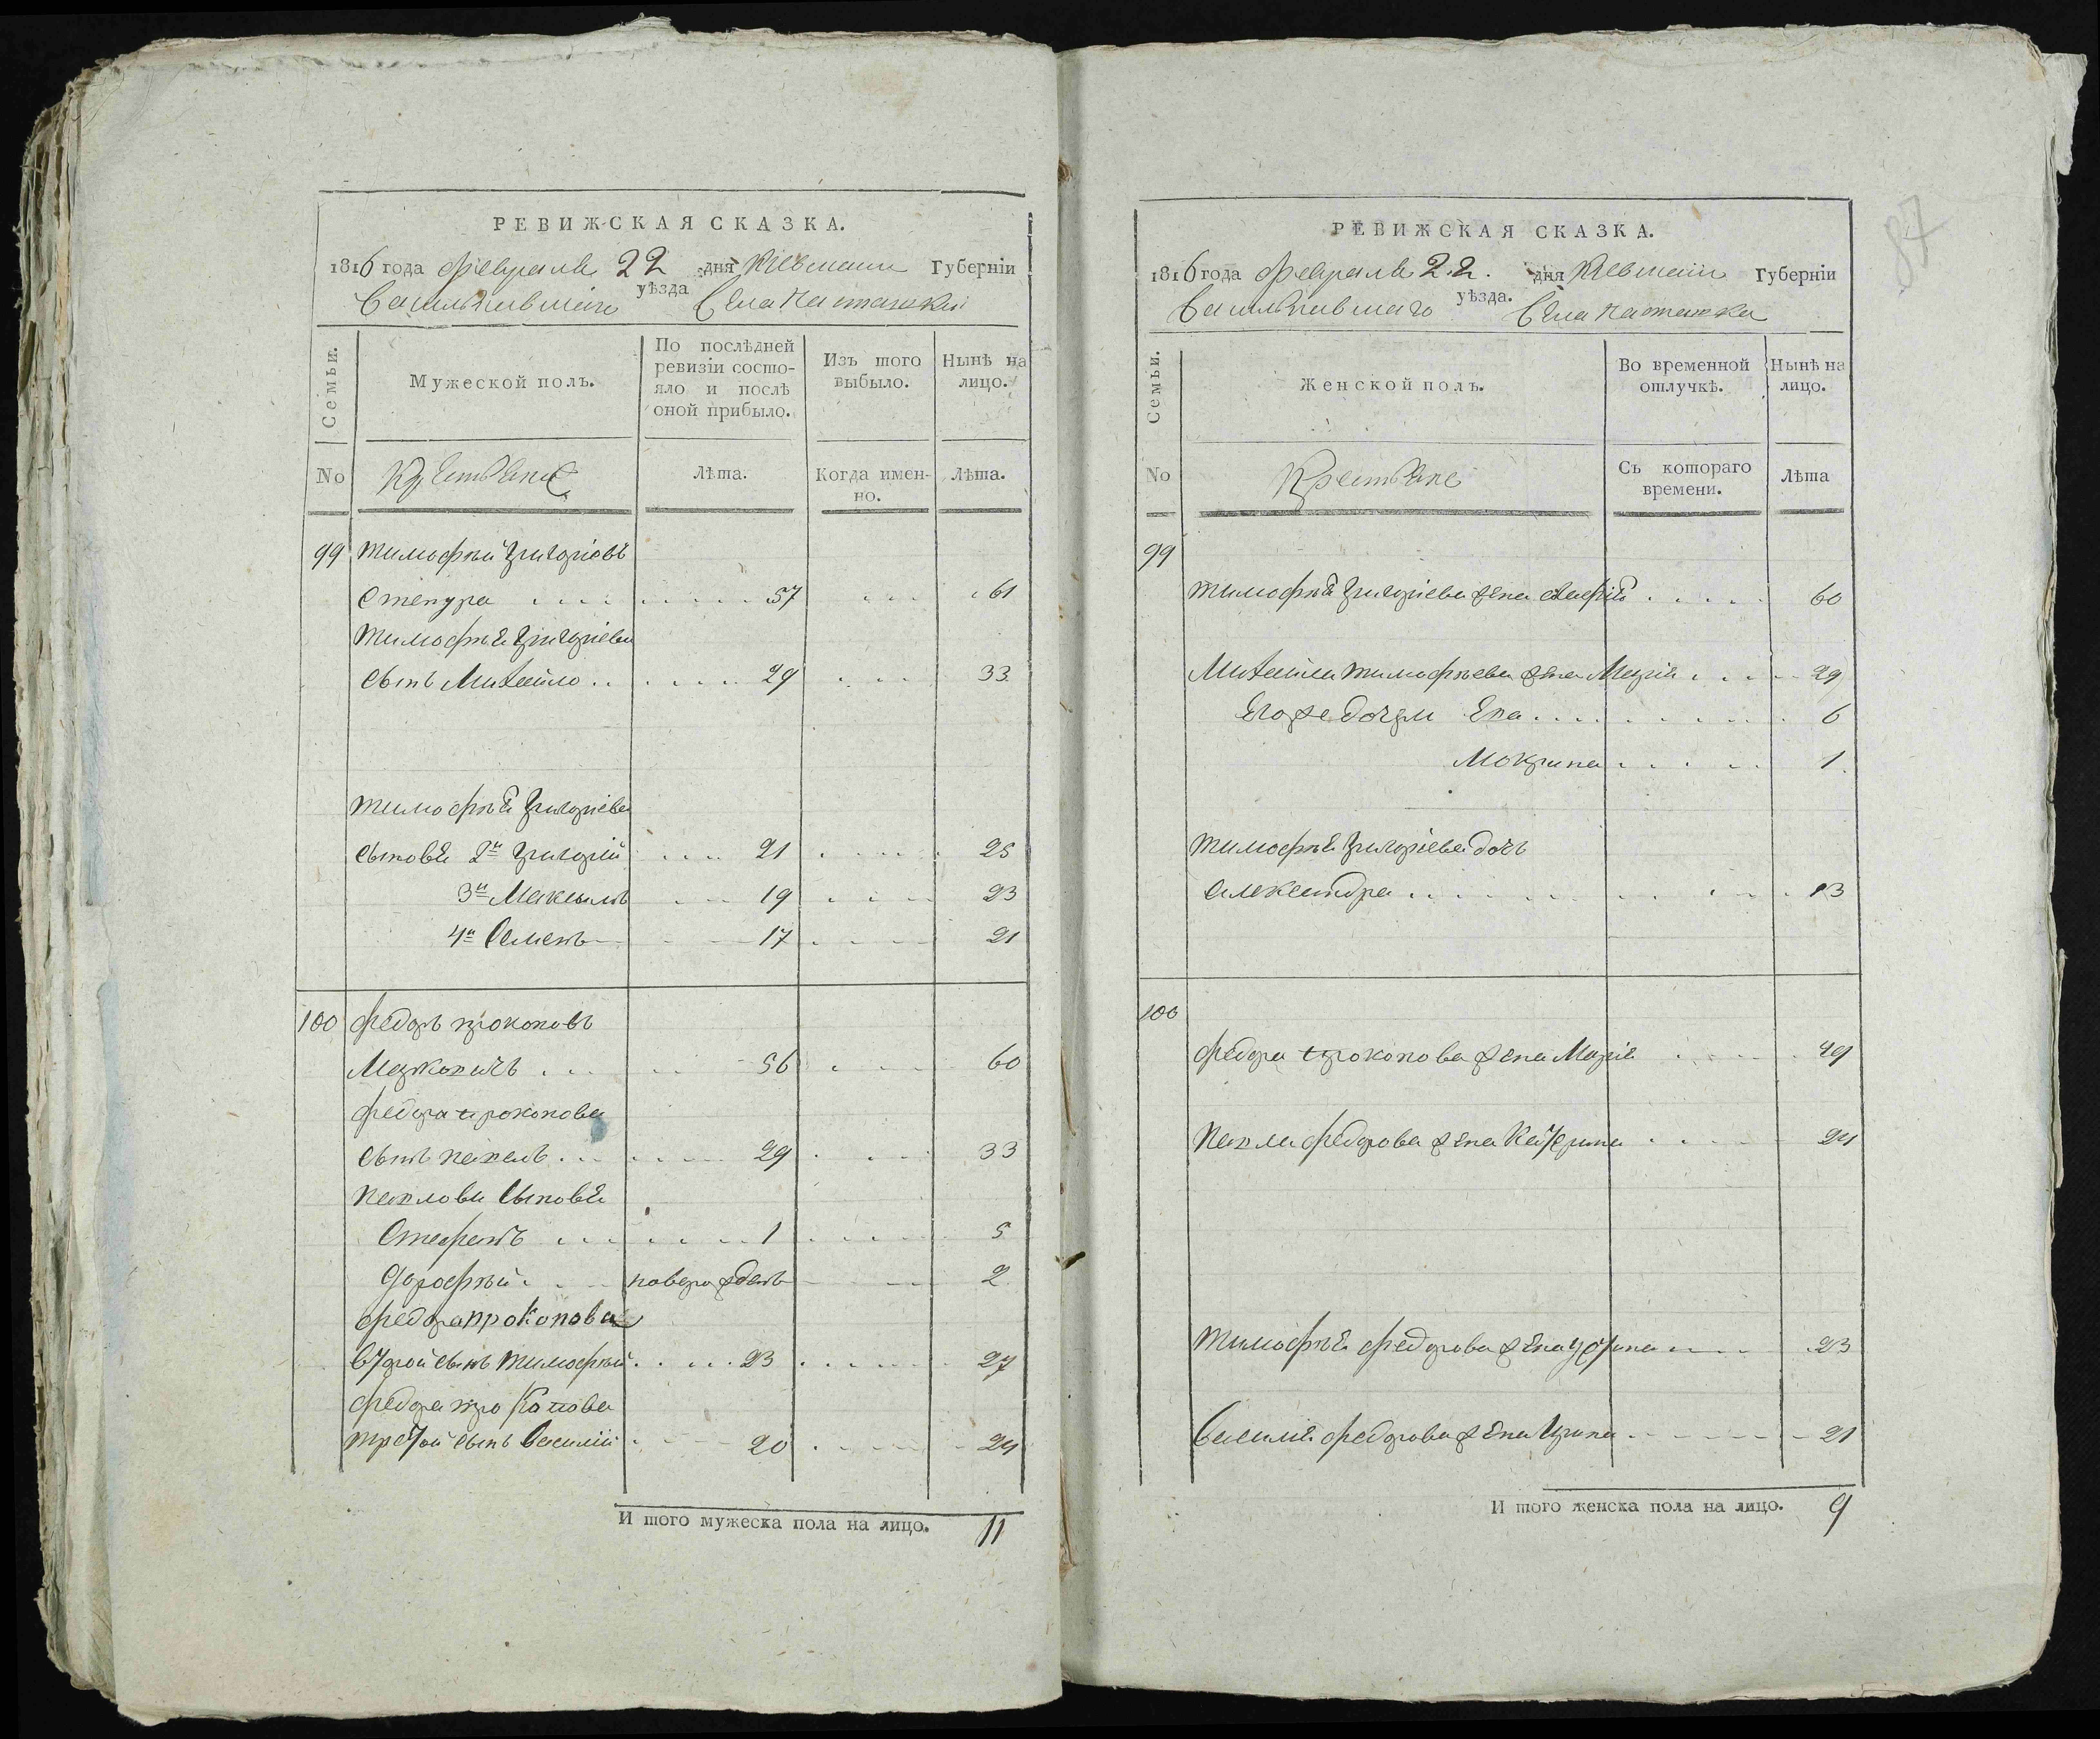 РЕВИЖСКАЯ СКАЗКА.
1816 года февраля 22 дня Киевской Губерніи
Васильковскаго уѣзда Села Пестовки
Семьи.
Мужеской полъ.
По послѣдней ревизіи состояло и послѣ оной прибыло.
Изъ того выбыло.
Нынѣ на лицо.
No
Крестьяне
Лѣта.
Когда именно.
Лѣта.
99 Тимофѣй Григоріевъ
Степура 57 61
Тимофѣя Григоріева
сынъ Михайло 29 33
Тимофѣя Григоріева
сыновья 2й Григорій 21 25
3й Максимъ 19 23
4й Семенъ 17 21
100 Федоръ Прокоповъ
56 60
Федора Прокопова
сынъ Павелъ 29 33
Павловы сыновья
Стефанъ 1 5
Дорофѣй новорожденъ 2
Федора Прокопова
второй сынъ Тимофѣй 23 27
Федора Прокопова
третой сынъ Василій 20 24
И того мужеска пола на лицо. 11
87
РЕВИЖСКАЯ СКАЗКА.
1816 года февраля 22. дня Киевской Губерніи
Васильковскаго уѣзда. Села
Семьи.
Женской полъ.
Во временной отлучкѣ.
Нынѣ на лицо.
No
Крестьяне
Съ котораго времени.
Лѣта
99
Тимофѣя Григоріева жена 60
Михайла Тимофѣева жена Марія 29
Его же дочери 6
Мокрина 1
Тимофѣя Григоріева дочь
Александра 13
100
Федора Прокопова жена Марія 49
Павла Федорова жена Катерина 24
Тимофѣя Федорова жена 23
Василія Федорова жена Ирина 21
И того женска пола на лицо. 9